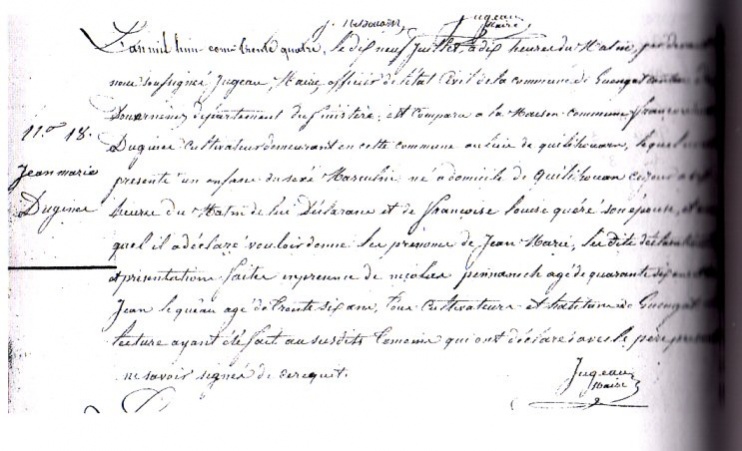 Jugeau
Maire
L'an mil huit cent trente quatre, le dix neuf Juillet, a dix heures du Matin, par devant
nous soussigné Jugeau Maire, officier de l'état Civil de la commune de Guengat canton
Douarnenez département du finistère, est comparu a la Maison commune françois
N.o 18.
Duginee Cultivateur demeurant en cette commune au lieu de quilihouarn, lequel
Jean marie
présenté un enfant du sexe Masculin, né a domicile de Quilihouan ce jour a
Duginee
heures du Matin de lui Déclarant et de françoise louise quéré son epouse, et
quel il a déclaré vouloir donner les prénoms de Jean Marie, les dites déclaration
et présentation faites en presence de nicolas pennanech agé de quarante six ans
Jean le quéau agé de trente six ans, tous cultivateurs et de Guengat
lecture ayant été fait au susdits temoins qui ont déclaré avec le père
ne savoir signé de ce requit.
Jugeau
Maire